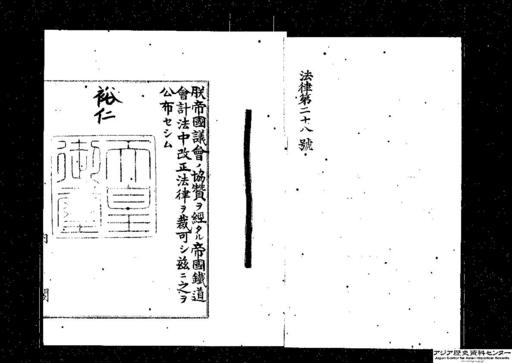 法律第二十八號
朕帝國議會ノ協贊ヲ經タル帝國鐵道
會計法中改正法律ヲ裁可シ茲ニ之ヲ
公布セシム
裕仁
天皇
御璽
内閣
アジア歴史資料センター
Japan Center for Asian Historical Records